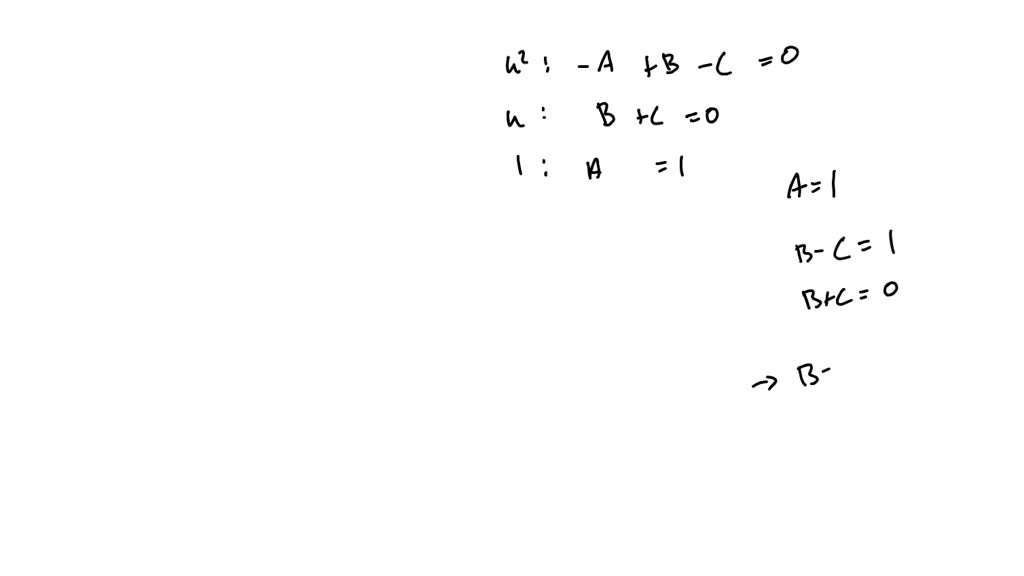 u² : -A +B -C = 0
u : B +C = 0
1 : A = 1
A = 1
B - C = 1
B+C = 0
→ B-